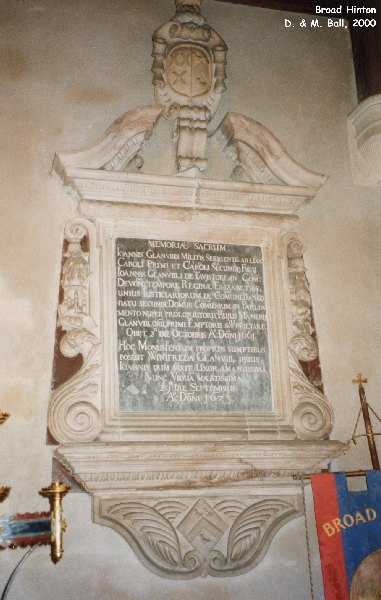 Broad Hinton
D. & M. Ball, 2000
MEMORIÆ SACRUM
IOANNIS GLANVILL MILITIS SERVIENTIS AD LEGE
CAROLI PRIMI ET CAROLI SECUNDI FILIJ
IOANNIS GLANVILL DE TAVISTOKE IN COM
DEVON TEMPORE REGINÆ ELIZABETHÆ
UNIUS IUSTICIARIORUM DE COMUNI BANCO
SECUNDI DOMUS COMUNIUM IN PARLIA
MENTO NUPER PROLOQUUTORIS HUIUS MANERIJ
GLANVILLORŪ PRIMI EMPTORIS & PROPRIETARIJ
OBIJT 2º DIE OCTOBRIS Aº DÑI 1661
HOC MONUMENTUM PROPRIJS SUMPTIBUS
POSUIT WINIFREDA GLANVILL IPSIUS
IOANNIS DUM VIXIT UXOR AMANTISSIMA
NUNC VIDUA MÆSTISSIMA
29 DIE SEPTEMBR
Aº DÑI 1673
BROAD